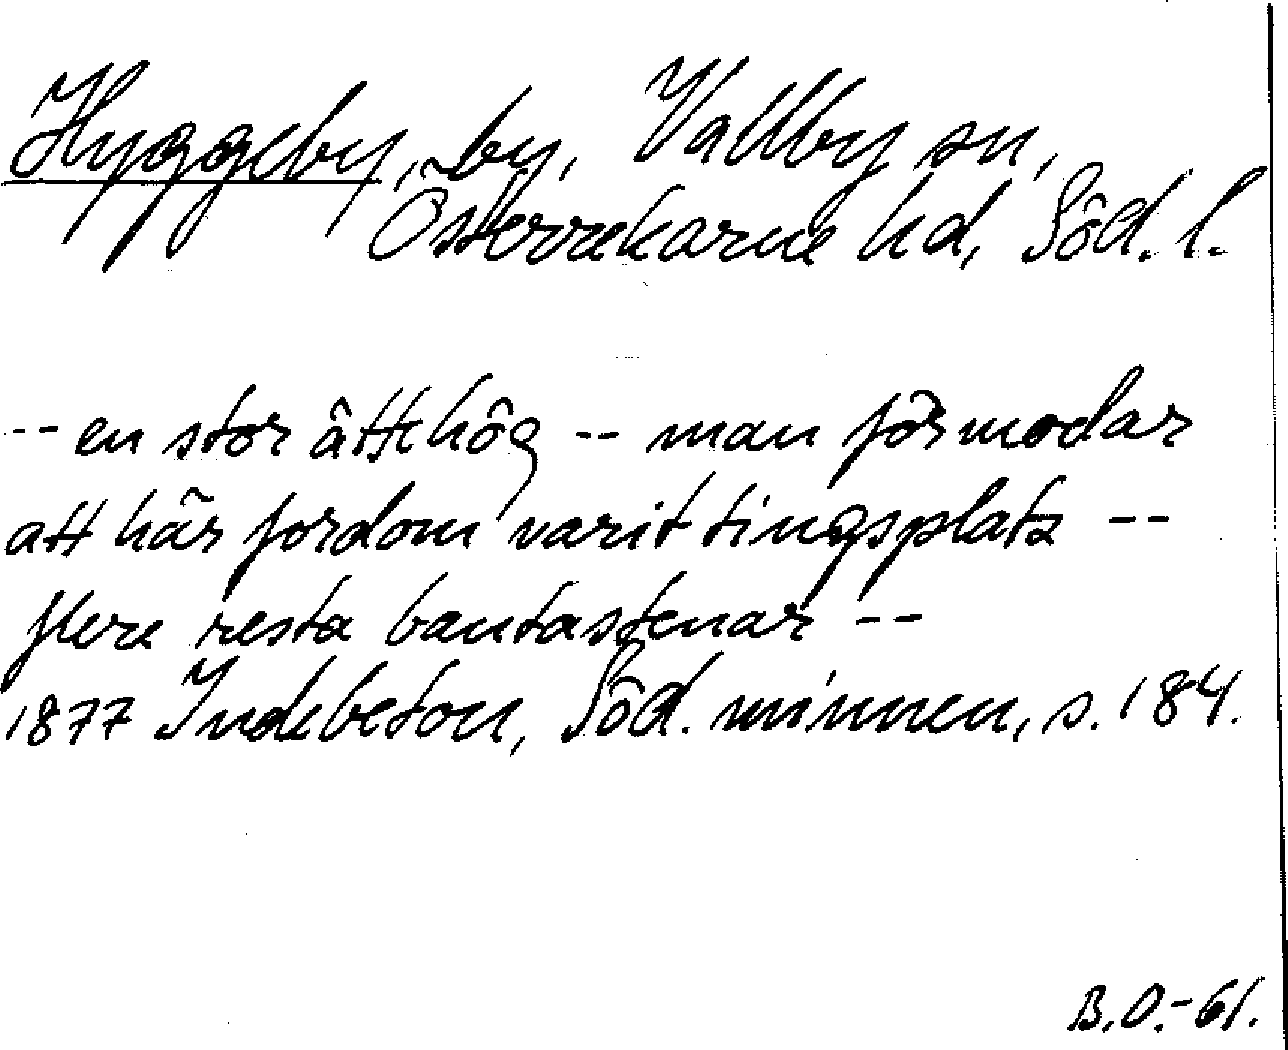 Hyggeby, by, Vallby sn,
Österrekarne hd, Söd. l.
-- en stor ätthög -- man förmodar
att här fordom varit tingsplats --
flere resta bautastenar --
1877 Indebetou, Söd. minnen, s. 184.
B.O.-61.